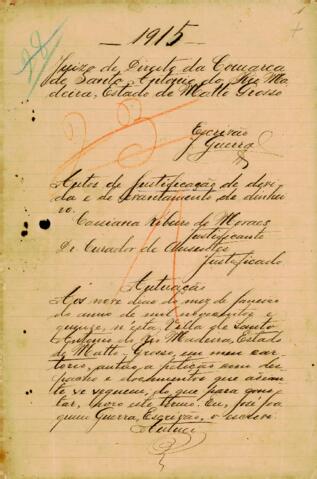 1915
Juizo de Direito da Comarca
de Santo Antonio do Rio Ma-
deira, Estado de Matto Grosso
Escrivão
J. Guerra
Autos de Justificação de divi-
da e de levantamento de dinhei-
ro.
Ribeiro de Moraes
Justificante
Dr Curador de Ausentes
Justificado
Autuação
Aos nove dias do mez de Janeiro
do anno de mil novecentos e
quinze, n'esta Villa de Santo
Antonio do Rio Madeira, Estado
de Matto-Grosso, em meu car-
torio, autuo a petição com des-
pacho e documentos que adian-
te se seguem; do que para cons-
tar, lavro este termo. Eu, José Joa-
quim Guerra, Escrivão, o escrevi.
Autuei